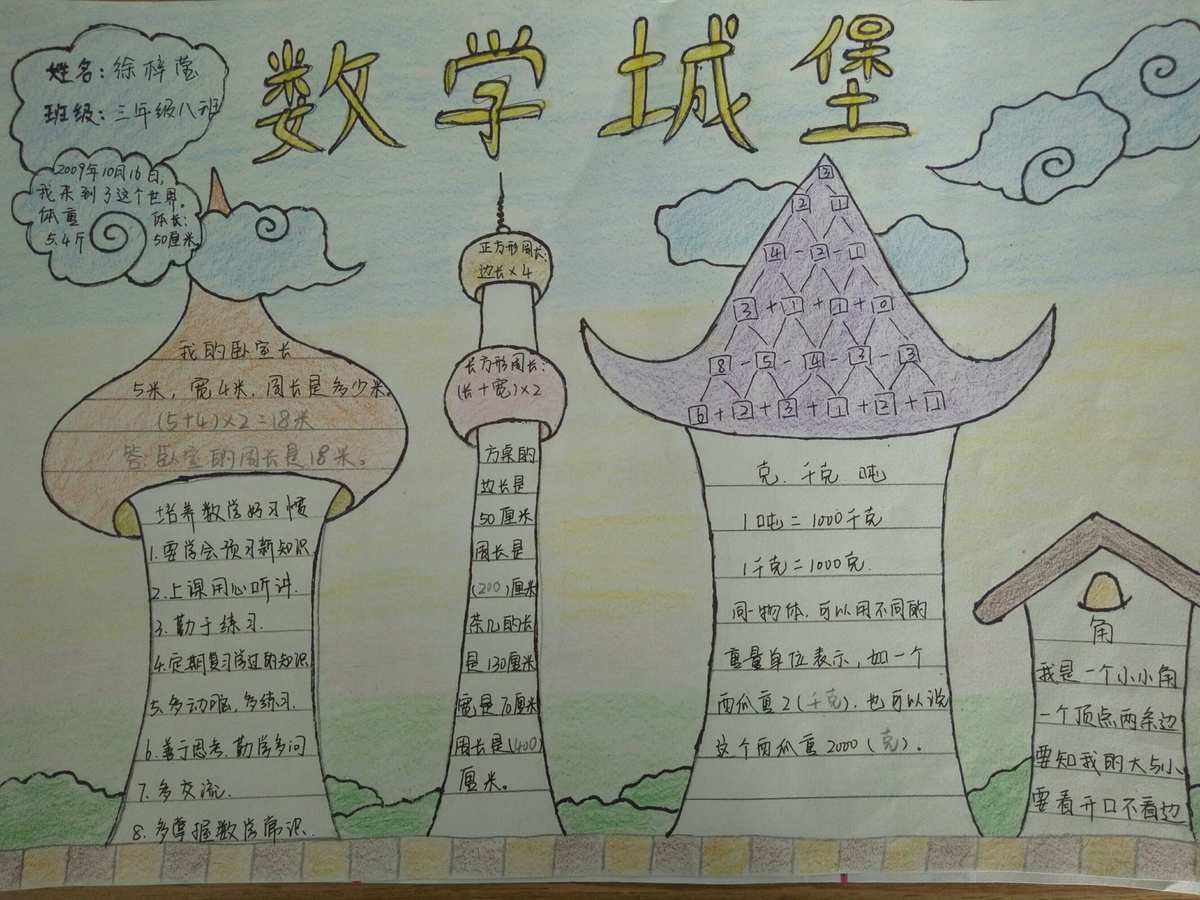 数学城堡
姓名：徐梓莹
班级：三年级八班
2009年10月16日，
我来到了这个世界。
体重 体长：
5.4斤 50厘米
我的卧室长
5米，宽4米，周长是多少米。
(5+4)×2=18米
答：卧室的周长是18米。
培养数学好习惯
1.要学会预习新知识
2.上课用心听讲.
3.勤于练习.
4.定期复习学过的知识
5.多动脑，多练习.
6.善于思考.勤学多问
7.多交流.
8.多掌握数学常识.
正方形周长：
边长×4
长方形周长：
(长+宽)×2
方桌的
边长是
50厘米
周长是
(200)厘米
茶几的长
是130厘米
宽是70厘米
周长是(400)
厘米。
3
2 1
4-2-1
3+1+1+0
8-5-4-3-3
6+2+3+1+2+1
克.千克 吨
1吨=1000千克
1千克=1000克.
同一物体.可以用不同的
重量单位表示，如一个
西瓜重2(千克).也可以说
这个西瓜重2000(克)。
角
我是一个小小角
一个顶点两条边
要知我的大与小
要看开口不看边